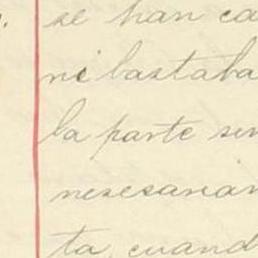 se han ca
ni bastaba
la parte sin
nesesarian
ta, cuand